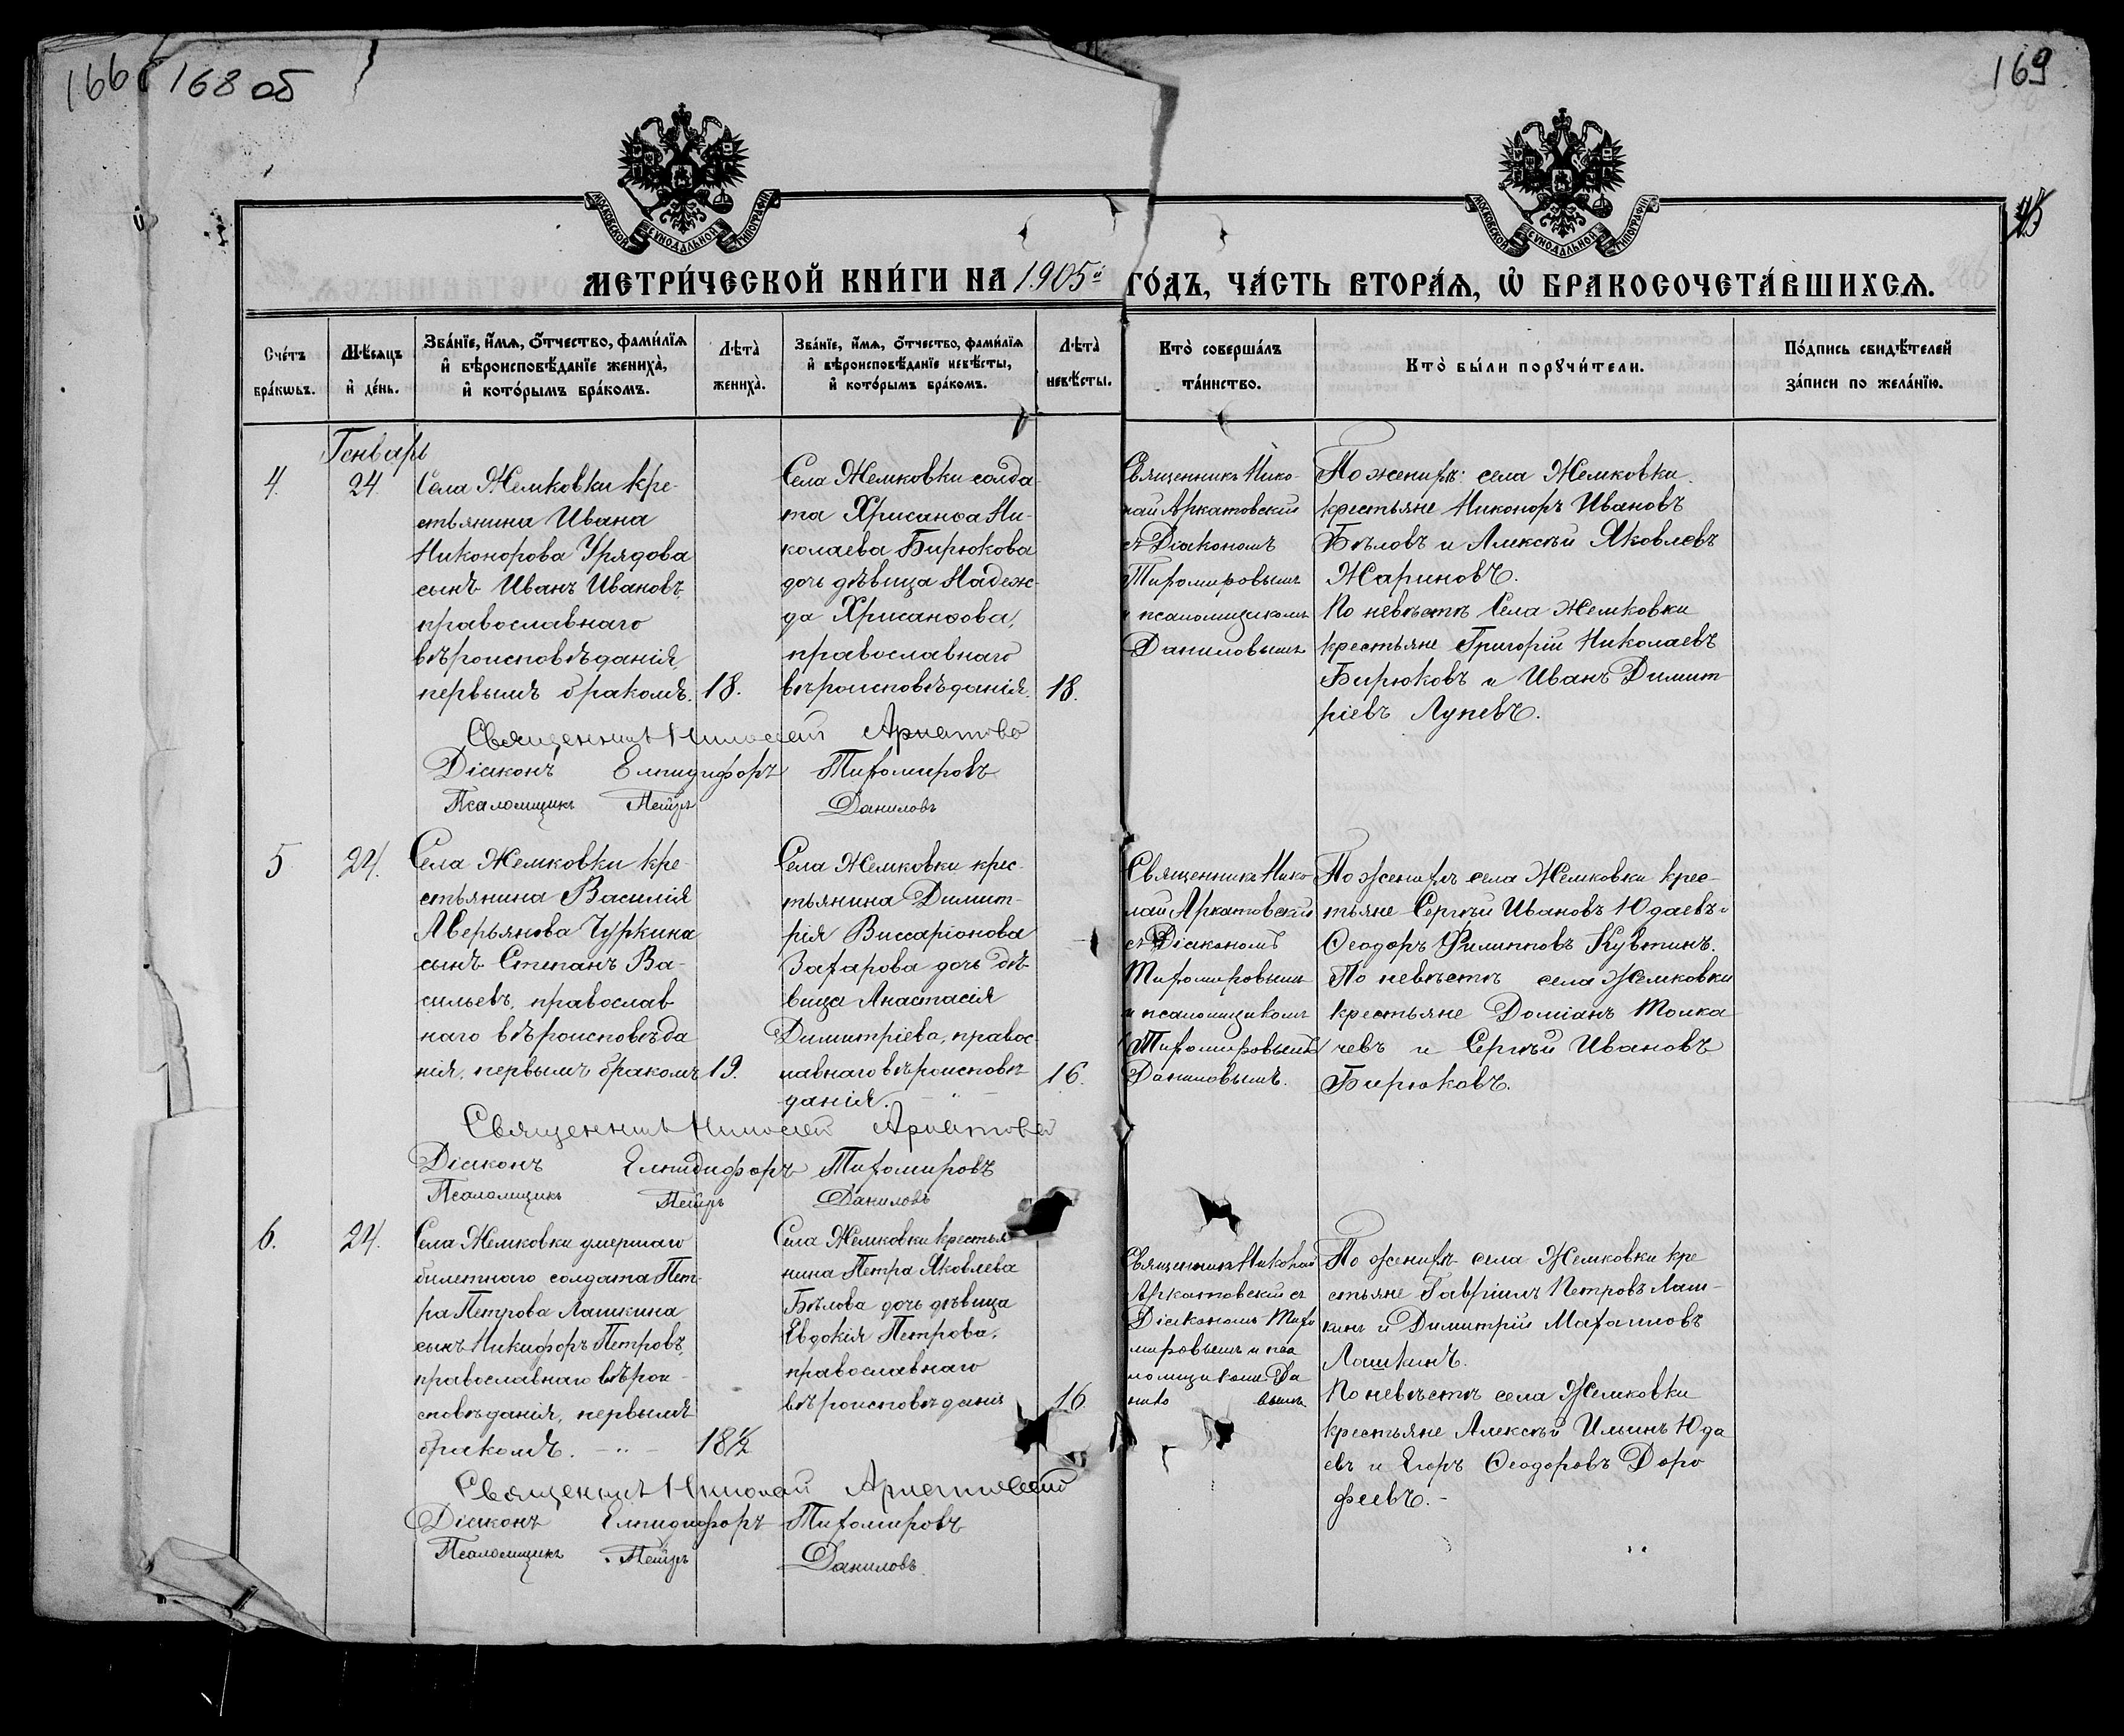 166
168 об
169
МОСКОВСКОЙ СѴНОДАЛЬНОЙ ТИПОГРАФІИ
МОСКОВСКОЙ СѴНОДАЛЬНОЙ ТИПОГРАФІИ
МЕТРИ́ЧЕСКОЙ КНИ́ГИ НА 1905й ГО́ДЪ, ЧА́СТЬ ВТОРА́Ѧ, Ѡ҆ БРАКОСОЧЕТА́ВШИХСѦ.
Сче́тъ бра́кѡвъ.
Мѣ́сяцъ и҆ де́нь.
Зва́нїе, и҆́мѧ, ѻ҆́тчество, фами́лїѧ
и҆ вѣроисповѣ́данїе жениха̀,
и҆ кото́рымъ бра́комъ.
Лѣта̀ жениха̀.
Зва́нїе, и҆́мѧ, ѻ҆́тчество, фами́лїѧ
и҆ вѣроисповѣ́данїе невѣ́сты,
и҆ кото́рымъ бра́комъ.
Лѣта̀ невѣ́сты.
Кто̀ соверша́лъ
та́инство.
Кто̀ бы́ли порꙋчи́тели.
По́дпись свидѣ́телей
за́писи по жела́нїю.
Генварь
4.
24.
Села Жемковки кре-
стьянина Ивана
Никонорова Урядова
сынъ Иванъ Ивановъ,
православнаго
вѣроисповѣданія,
первымъ бракомъ.
18.
Села Жемковки солда
та Хрисанѳа Ни-
колаева Бирюкова
дочь дѣвица Надеж-
да Хрисанѳова,
православнаго
вѣроисповѣданія.
18.
Священникъ Нико-
лай Аркатовскій
съ Діакономъ
Тихомировымъ
и псаломщикомъ
Даниловымъ
По женихѣ: села Жемковки
крестьяне Никоноръ Ивановъ
Бѣловъ и Алексѣй Яковлевъ
Жариновъ.
По невѣстѣ Села Жемковки
крестьяне Григорій Николаевъ
Бирюковъ и Иванъ Димит-
ріевъ Лупевъ.
Священникъ Николай Аркатово
Діаконъ Елпидифоръ Тихомировъ
Псаломщикъ Петръ Даниловъ
5
24.
Села Жемковки кре-
стьянина Василія
Аверьянова Чуркина
сынъ Степанъ Ва-
сильевъ, православ
наго вѣроисповѣда
нія, первымъ бракомъ
19.
Села Жемковки крес-
тьянина Димит-
рія Виссаріонова
Захарова дочь дѣ-
вица Анастасія
Димитріева, правос-
лавнаго вѣроисповѣ
данія.
16.
Священникъ Нико
лай Аркатовскій
съ Діакономъ
Тихомировымъ
и псаломщикомъ
Тихомировымъ
Даниловымъ.
По женихѣ села Жемковки крес-
тьяне Сергѣй Ивановъ Юдаевъ и
Ѳеодоръ Филипповъ Кувтинъ.
По невѣстѣ села Жемковки
крестьяне Доміанъ Толка
чевъ и Сергѣй Ивановъ
Бирюковъ.
Священникъ Николай Аркатовск
Діаконъ Елпидифоръ Тихомировъ
Псаломщикъ Петръ Даниловъ
6.
24.
Села Жемковки умершаго
билетнаго солдата Пет-
ра Петрова Лашкина
сынъ Никифоръ Петровъ,
православнаго вѣрои-
сповѣданія, первымъ
бракомъ.
18½
Села Жемковки крестья
нина Петра Яковлева
Бѣлова дочь дѣвица
Евдокія Петрова,
православнаго
вѣроисповѣданія
16
Священникъ Николай
Аркатовскій съ
Діакономъ Тихо
мировымъ и пса
ломщикомъ Да
нило вымъ
По женихѣ села Жемковки кре
стьяне Гавріилъ Петровъ Лаш-
кинъ и Димитрій Махаиловъ
Лашкинъ.
По невѣстѣ села Жемковки
крестьяне Алексѣй Ильинъ Юда
евъ и Егоръ Ѳеодоровъ Доро
феевъ.-
Священникъ Николай Аркатовскій
Діаконъ Елпидифоръ Тихомировъ
Псаломщикъ Петръ Даниловъ